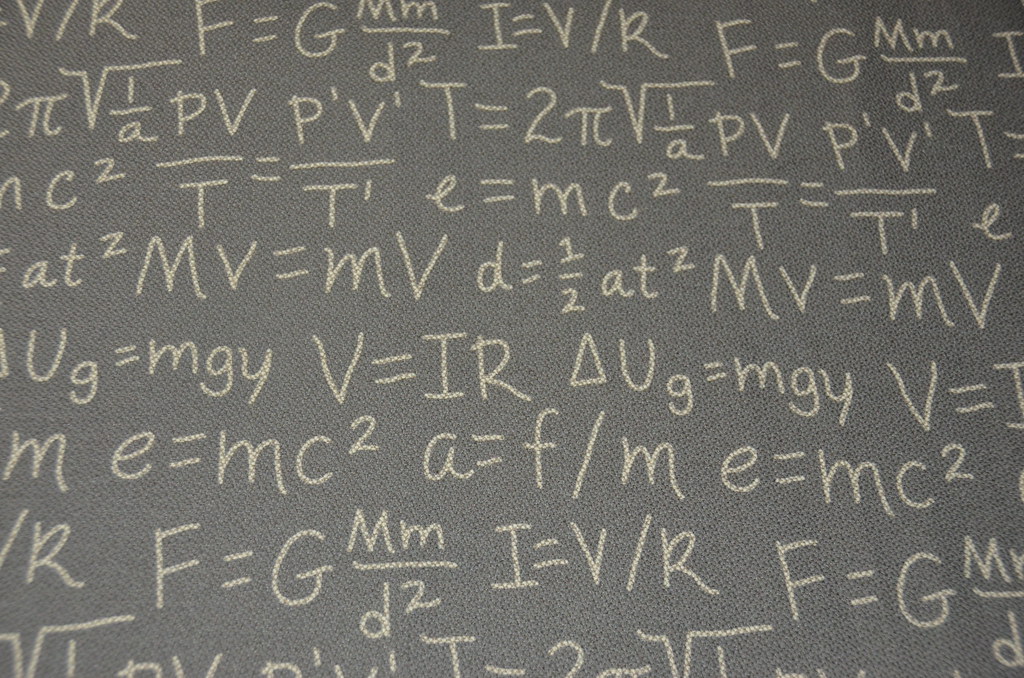 V/R F=G Mm/d² I=V/R F=G Mm/d² I
2π√1/a PV/T = P'V'/T' T=2π√1/a PV/T = P'V'/T' T=
mc² e=mc² e
=at² MV=mV d=1/2at² MV=mV
ΔUg=mgy V=IR ΔUg=mgy V=I
m e=mc² a=f/m e=mc²
/R F=G Mm/d² I=V/R F=G Mm/d
√1 PV P'V' T=2π√1